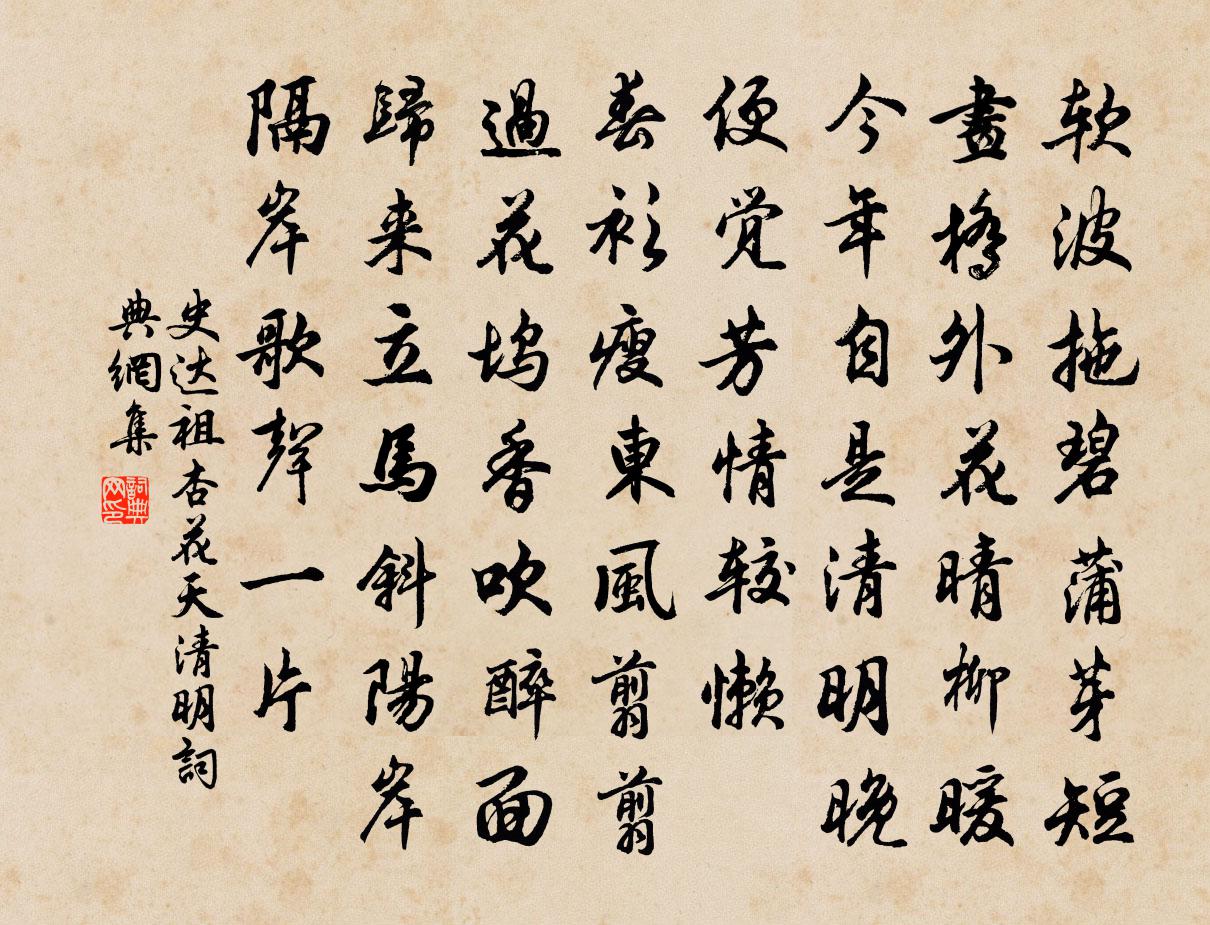 软波拖碧蒲芽短
畫橋外花晴柳暖
今年自是清明晚
便觉芳情较懒
春衫瘦東風翦翦
過花坞香吹醉面
歸来立馬斜陽岸
隔岸歌聲一片
史达祖杏花天清明詞
典網集
詞典
网印